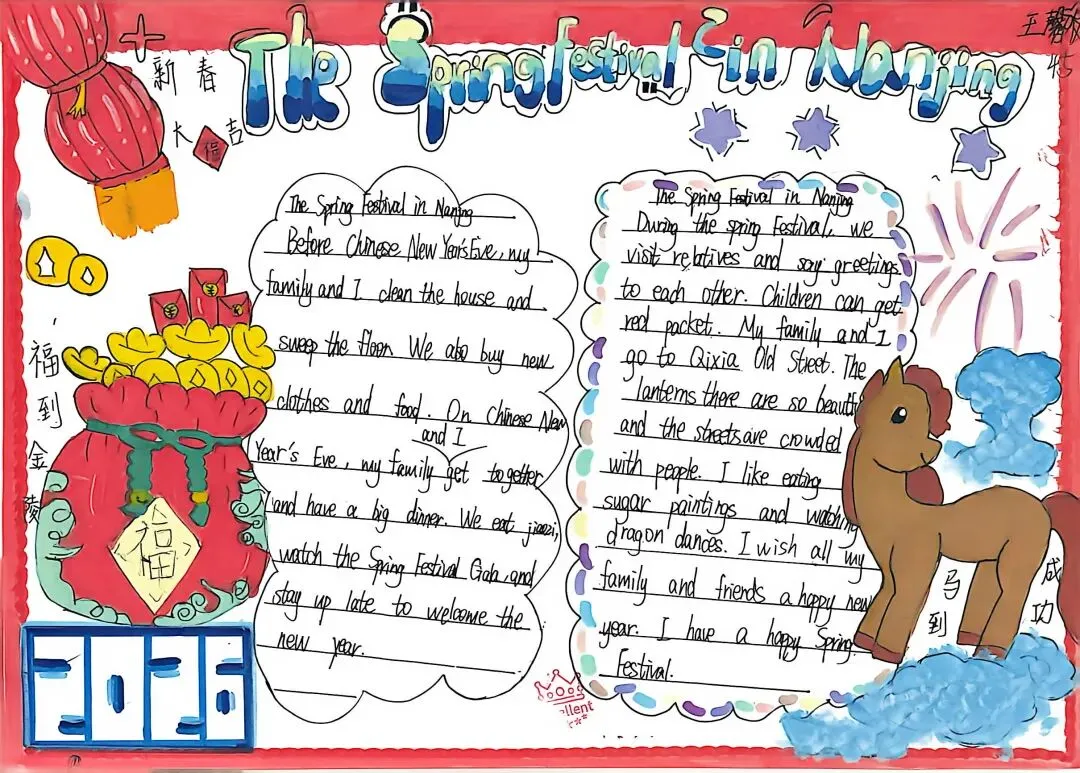 The Spring Festival in Nanjing
新春
大吉
福
福到金陵
福
The Spring Festival in Nanjing
Before Chinese New Year's Eve, my
family and I clean the house and
sweep the floor. We also buy new
clothes and food. On Chinese New
and I
Year's Eve, my family get together
and have a big dinner. We eat jiaozi,
watch the Spring Festival Gala, and
stay up late to welcome the
new year.
The Spring Festival in Nanjing
During the spring Festival, we
visit relatives and say greetings
to each other. Children can get
red packet. My family and I
go to Qixia Old Street. The
lanterns there are so beautif
and the streets are crowded
with people. I like eating
sugar paintings and watching
dragon dances. I wish all my
family and friends a happy new
year. I have a happy Spring
Festival.
马到
成功
2026